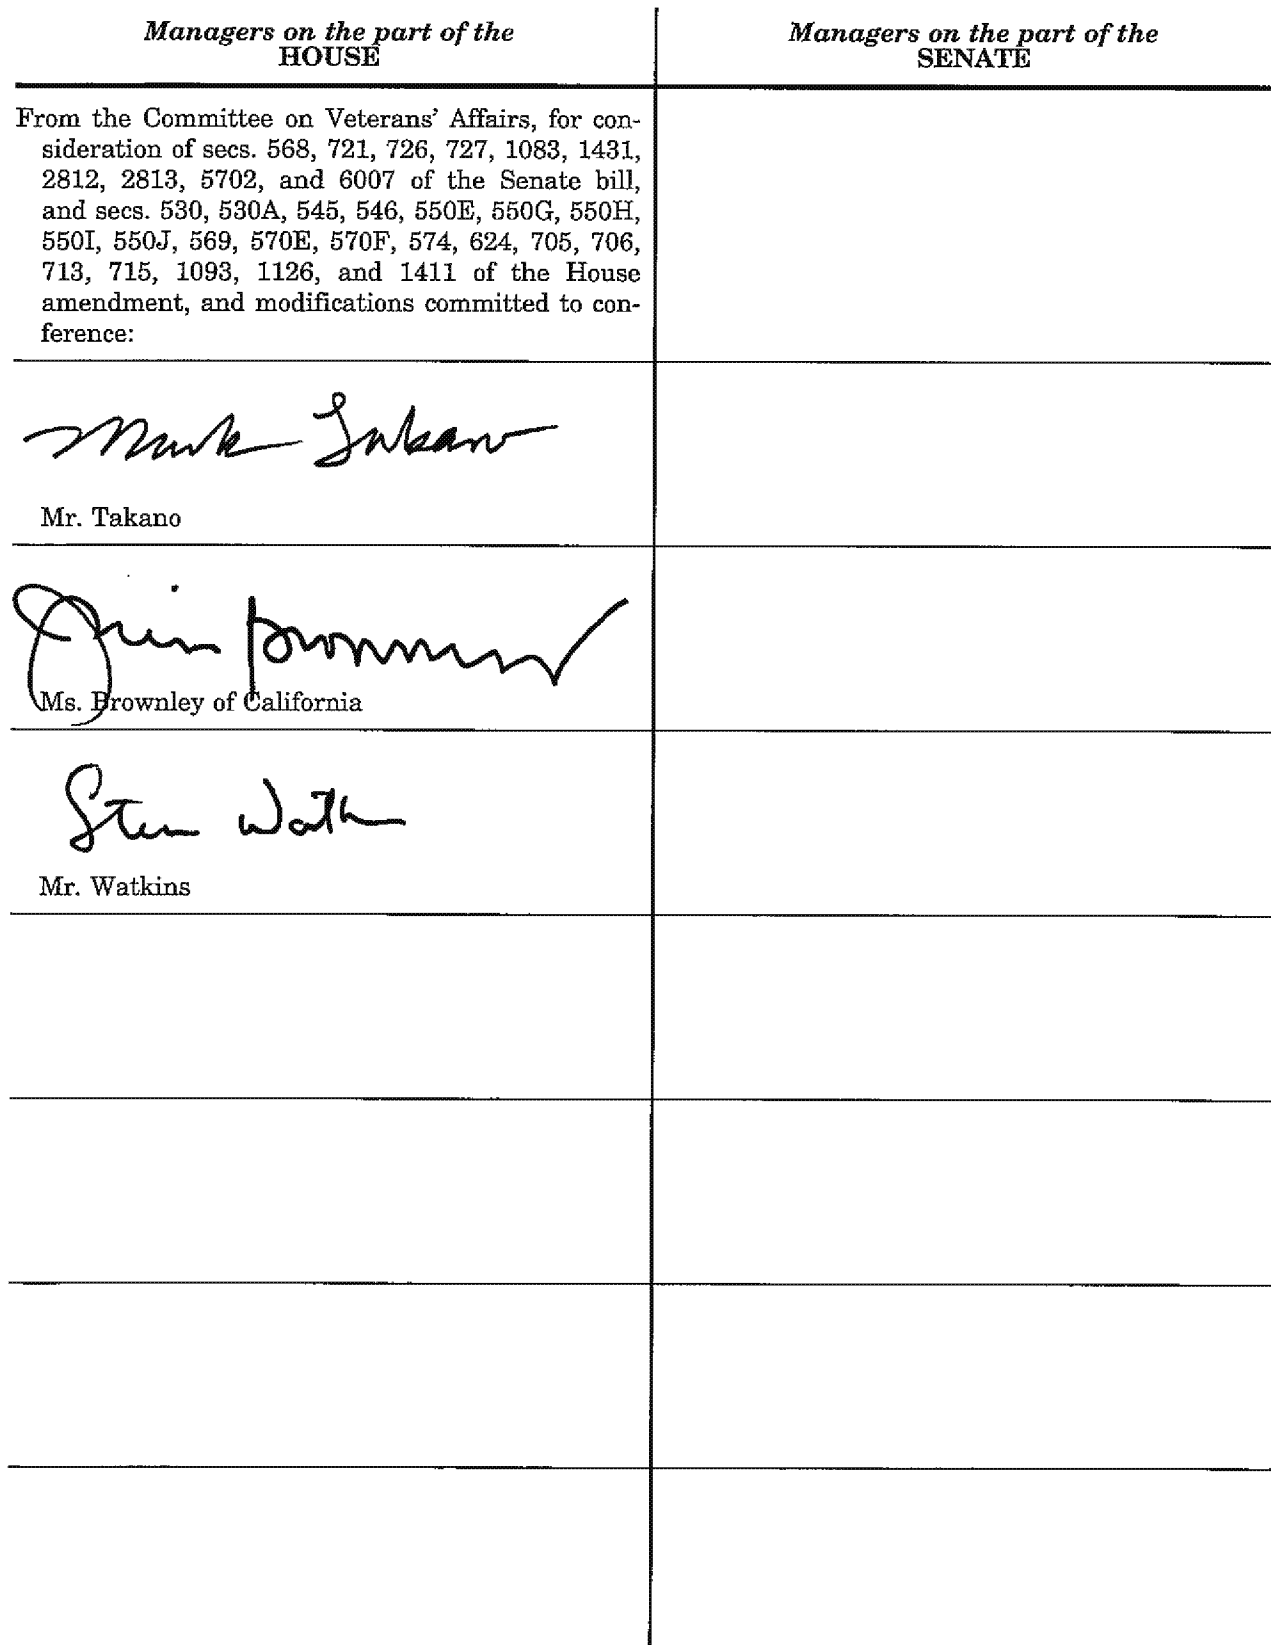 Managers on the part of the
HOUSE
Managers on the part of the
SENATE
From the Committee on Veterans' Affairs, for con-
sideration of secs. 568, 721, 726, 727, 1083, 1431,
2812, 2813, 5702, and 6007 of the Senate bill,
and secs. 530, 530A, 545, 546, 550E, 550G, 550H,
550I, 550J, 569, 570E, 570F, 574, 624, 705, 706,
713, 715, 1093, 1126, and 1411 of the House
amendment, and modifications committed to con-
ference:
Mark Takano
Mr. Takano
Ms. Brownley of California
Mr. Watkins